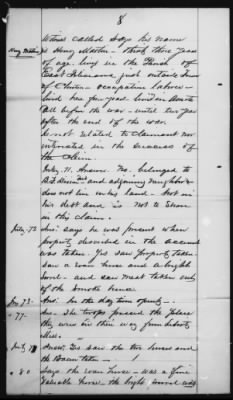 8
Witness called Says his name
is Henry Mattin - thirty three years
of age, lives in the Parish of
East Feliciana just outside Town
of Clinton - occupation laborer -
lived here four years. lived in
all before the war - until two years
after the end of the war.
Is not related to claimant nor
interested in the success of
the Claim.
Inty. 11. Answer No. belonged to
and adjoining neighbor
does not live on his land - Not in
his debt and is not to share
in this claim.
Inty. 72 Ans: says he was present when
property described in the account
was taken. Yes saw property taken
saw a roan horse and a bright
sorrel - and saw meat taken out
of the smoke house
Inty 73 - Ans: In the day time openly -
" 77 - Ans: The troops passed the place
they were on their way from
Miss.
Inty 78 Answ: Yes saw the two horses and
the Bacon taken -
" 80 Says the roan horse - was a fine
valuable horse the bright sorrel was